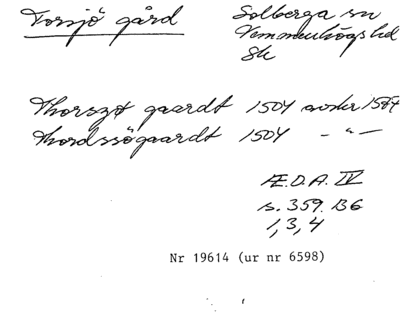 Torsjö gård
Solberga sn
Vemmenhögs hd
Sk
Thorszø gaardt 1504 avskr 1584
Thordssøgaardt 1504 – " –
Æ.D.A. IV
s. 359. B6
1, 3, 4
Nr 19614 (ur nr 6598)